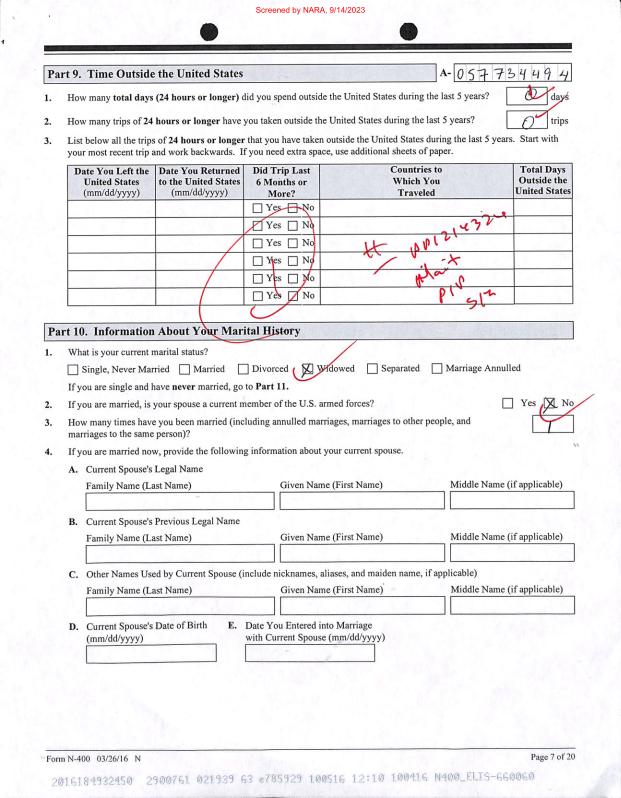 Screened by NARA, 9/14/2023
Part 9. Time Outside the United States
A- 057734494
1. How many total days (24 hours or longer) did you spend outside the United States during the last 5 years? 0 days
2. How many trips of 24 hours or longer have you taken outside the United States during the last 5 years? 0 trips
3. List below all the trips of 24 hours or longer that you have taken outside the United States during the last 5 years. Start with
your most recent trip and work backwards. If you need extra space, use additional sheets of paper.
Date You Left the United States (mm/dd/yyyy) Date You Returned to the United States (mm/dd/yyyy) Did Trip Last 6 Months or More? Countries to Which You Traveled Total Days Outside the United States
Yes No
Yes No
Yes No
Yes No
Yes No
Yes No
Part 10. Information About Your Marital History
1. What is your current marital status?
Single, Never Married Married Divorced X Widowed Separated Marriage Annulled
If you are single and have never married, go to Part 11.
2. If you are married, is your spouse a current member of the U.S. armed forces? Yes X No
3. How many times have you been married (including annulled marriages, marriages to other people, and
marriages to the same person)? 1
4. If you are married now, provide the following information about your current spouse.
A. Current Spouse's Legal Name
Family Name (Last Name) Given Name (First Name) Middle Name (if applicable)
B. Current Spouse's Previous Legal Name
Family Name (Last Name) Given Name (First Name) Middle Name (if applicable)
C. Other Names Used by Current Spouse (include nicknames, aliases, and maiden name, if applicable)
Family Name (Last Name) Given Name (First Name) Middle Name (if applicable)
D. Current Spouse's Date of Birth (mm/dd/yyyy) E. Date You Entered into Marriage with Current Spouse (mm/dd/yyyy)
Form N-400 03/26/16 N Page 7 of 20
2016184932450 2900761 021939 63 e785929 100516 12:10 100416 N400_ELIS-660060